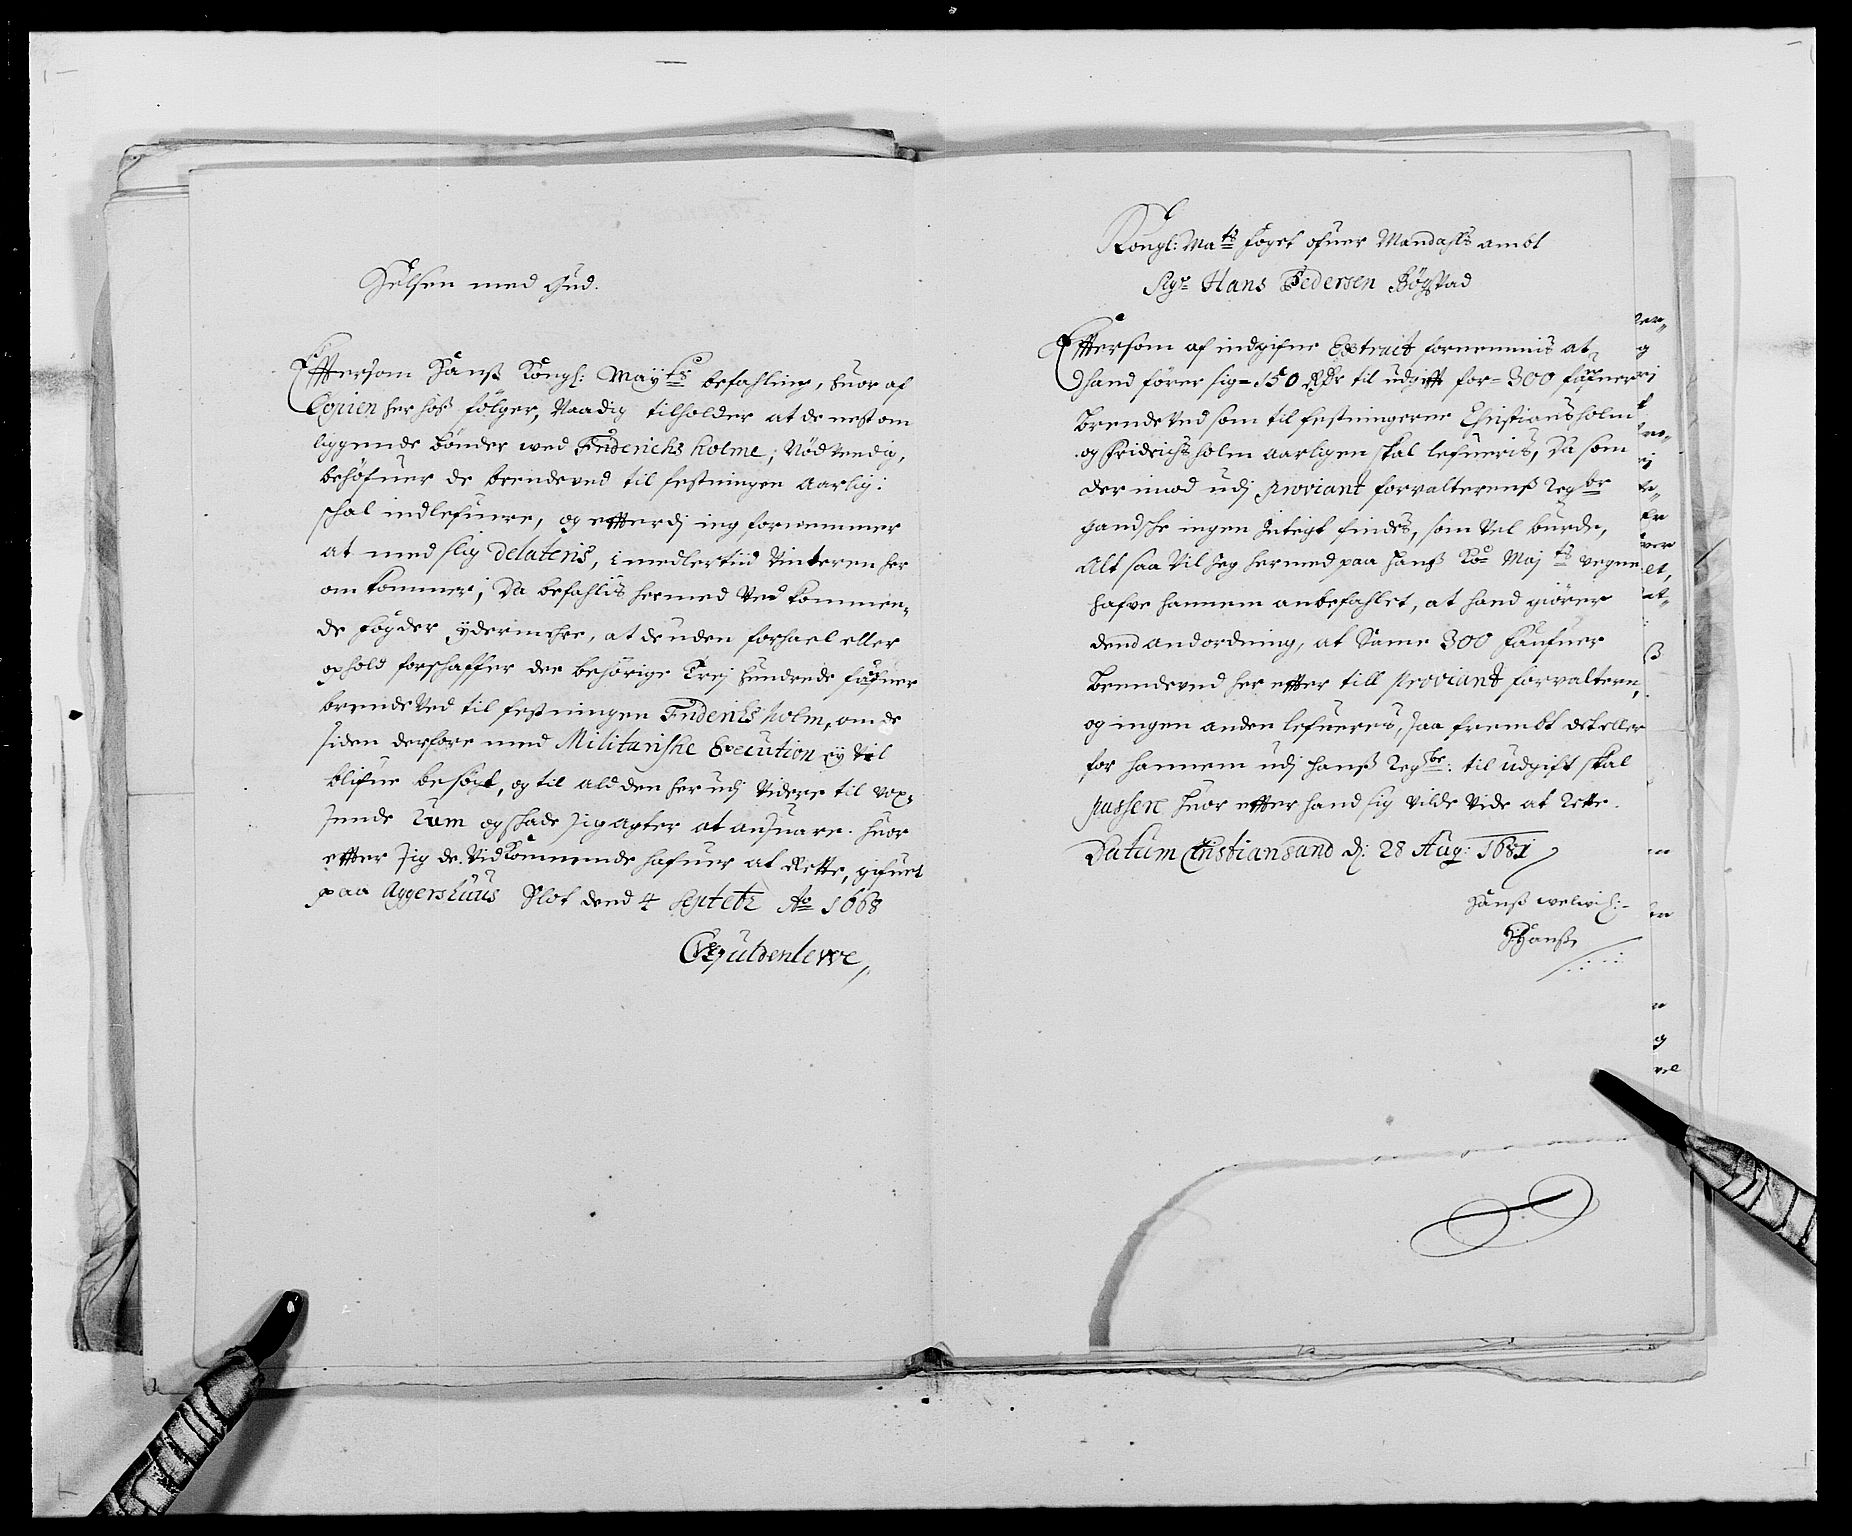 Helsen med Gud.
Efftersom Hans Kongl: Mayts befahling, huor af
Copien her hoß fölger, Naadig tilholder at de nest om
liggende bönder wed Friderichs holme, Nödvendig,
behöfuer de brendeved til festningen Aarlig:
schal indlefuere, og effterdj ieg fornemmer
at med slig delateris, imedlertiid Vinteren her
om kommer, Da befahlis hermed Ved kommen-
de fogder ydermehre, at de uden forhael eller
ophold forschaffer dee behörige Trej hundrede faufner
brendeVed til festningen Friderichs holm, om de
siden derfore med Militarishe Execution ey Vil
blifue besögt, og til ald den her udj Videre til vox-
sende Rum og schade sig agter at ansuare. huor
effter sig de Vidkommende hafuer at Rette, gifuet
paa Aggershuus Slot dend 4 Septebr Ao 1668
Gyldenlewe,
Kongl: Mats foget ofuer Mandahls ambt
Sigr Hans Pedersen Bögstad
Effersom af indgifne Extract fornemmis at
hand förer sig 150 Rdr til udgifft for 300 faufner
brendeVed som til festningerne Christiansholm
og Fridrichsholm aarligen skal lefueris, Da som
der imod udj Proviant forvalterenß Regbr
gandsche ingen Integt findes, som Vel burde,
Alt saa Vil Jeg hermed paa Hanß Ko Maj ts vegne
hafve hannem anbefahlet, at hand giörer
dend andordning, at Samme 300 faufner
brendeved her effter till Proviant forvaltere,
og ingen anden lefueres, saa frembt det eller
for hannem udj hanß Regsbr: til udgift skal
passere huor effter hand sig vilde vide at Rette.
Datum Christiansand d: 28 Aug: 1681
Hanß